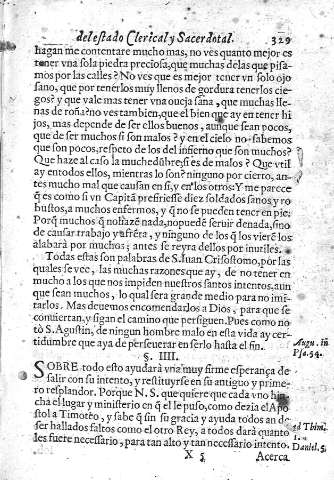 del estado Clerical, y Sacerdotal. 329
hagan me contentare mucho mas, no ves quanto mejor es
tener vna sola piedra preciosa, que muchas delas que pisa-
mos por las calles? No ves que es mejor tener vn solo ojo
sano, que por tenerlos muy llenos de gordura tenerlos cie-
gos? y que vale mas tener vna oueja sana, que muchas lle-
nas de roña? no ves tambien, que el bien que ay en tener hi
jos, mas depende de ser ellos buenos, aunque sean pocos,
que de ser muchos si son malos? y en el cielo no sabemos
que son pocos, respeto de los del infierno que son muchos?
Que haze al caso la muchedũbre, si es de malos? Que vtil
ay en todos ellos, mientras lo son? ninguno por cierto, an-
tes mucho mal que causan en si, y en los otros: Y me parece
q̃ es como si vn Capitã prefiriesse diez soldados sanos, y ro
bustos, a muchos enfermos, y q̃ no se pueden tener en pie:
Porq̃ muchos q̃ no haze nada, no puedē seruir de nada, sino
de causar trabajo y afrēta, y ninguno de los q̃ los vierē los
alabarà por muchos; antes se reyra dellos por inutiles.
Todas estas son palabras de S. Iuan Crisostomo, por las
quales se vee, las muchas razones que ay, de no tener en
mucho a los que nos impiden nuestros santos intentos, aun
que sean muchos, lo qual sera grande medio para no imi-
tarlos. Mas deuemos encomendarlos a Dios, para que se
conuiertan, y sigan el camino que persiguen. Pues como no
tò S. Agustin, de ningun hombre malo en esta vida ay cer-
tidumbre que aya de perseuerar en serlo hasta el fin.
Augu. in
Psa. 54.
§. IIII.
SOBRE todo esto ayudarà vna muy firme esperança de
salir con su intento, y restituyrse en su antiguo y prime-
ro resplandor. Porque N. S. que quiere que cada vno hin
cha el lugar y ministerio en q̃ el le puso, como dezia el Apo
stol a Timoteo, y sabe q̃ sin su gracia y ayuda todos an de
ser hallados faltos como el otro Rey, a todos darà quanto
les fuere necessario, para tan alto y tan necessario intento.
ad Thim.
1.
Daniel. 5.
X 5 Acerca